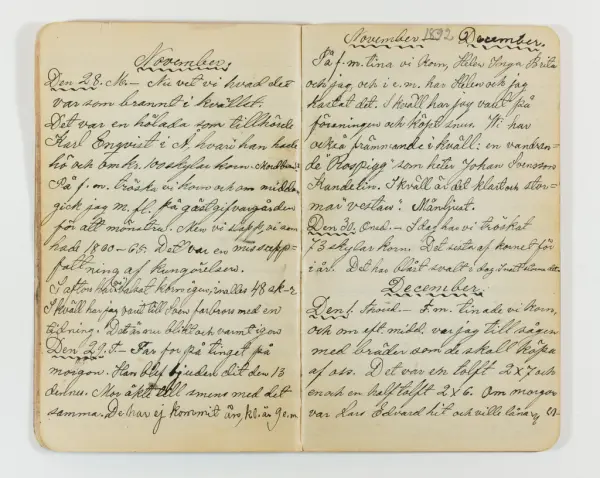 November.
Den 28. M.— Nu vet vi hvad det
var som brannt i kvällst.
Det var en hölada som tillhörde
Karl Enqvist i A, hvari han hade
hö och omkr. 100 skylar korn.
På f.m. tröska vi korn och om midda-
gick jag m. fl. på gästgifvargården
för att mönstra. Men vi slapp, vi som
hade 1860–65. Det var en missupp-
fattning af kungörelsen.
I afton har korn igen, 48 sk-r
I kväll har jag varit till farbrors med en
tidning. Det är nu blidt och varmt igen
Den 29. T— Far for på tinget på
morgon. Han blef bjuden dit den 13
dennes. Mor åkte till smens med det
samma. De har ej kommit än, kl. är 9 e.m.
November 1892 December.
På f.m. tina vi korn, Helen Inga Brita
och jag, och i e.m. har Helen och jag
kastat det. I kväll har jag varit på
föreningen och köpt snus. Vi har
också främmande i kväll: en vandran-
de "Rospigg" som heter Johan Svensson
Kandelin. I kväll är det klart och stor-
mar "vestan". Månljust.
Den 30. Onsd.— I dag har vi tröskat
73 skylar korn. Det sista af kornet för
i år. Det har blåst svalt i dag
December.
Den 1. Thorsd.— F.m. tinade vi korn,
och om eft. midd. var jag till sågen
med bräder som de skall köpa
af oss. Det var en tolft 2 x 7 och
en och en half tolft 2 x 6. Om morgon
var Lars Edvard hit och ville låna